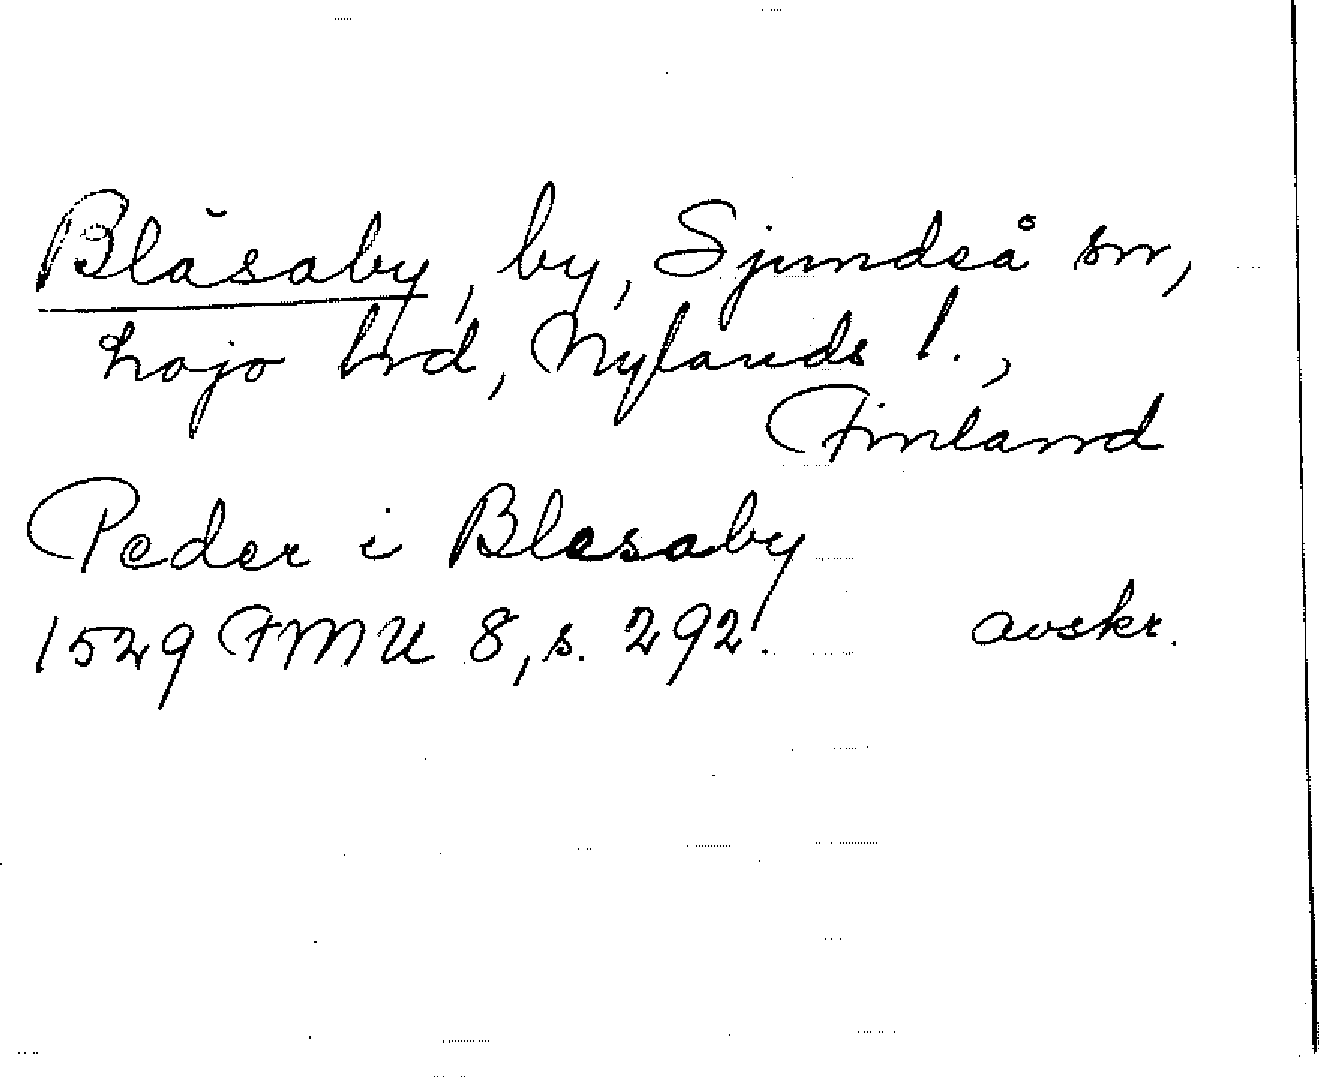 Blåsaby, by, Sjundeå sn,
Lojo hrd, Nylands l.,
Finland
Peder i Blesaby
1529 FMU 8, s. 292. avskr.